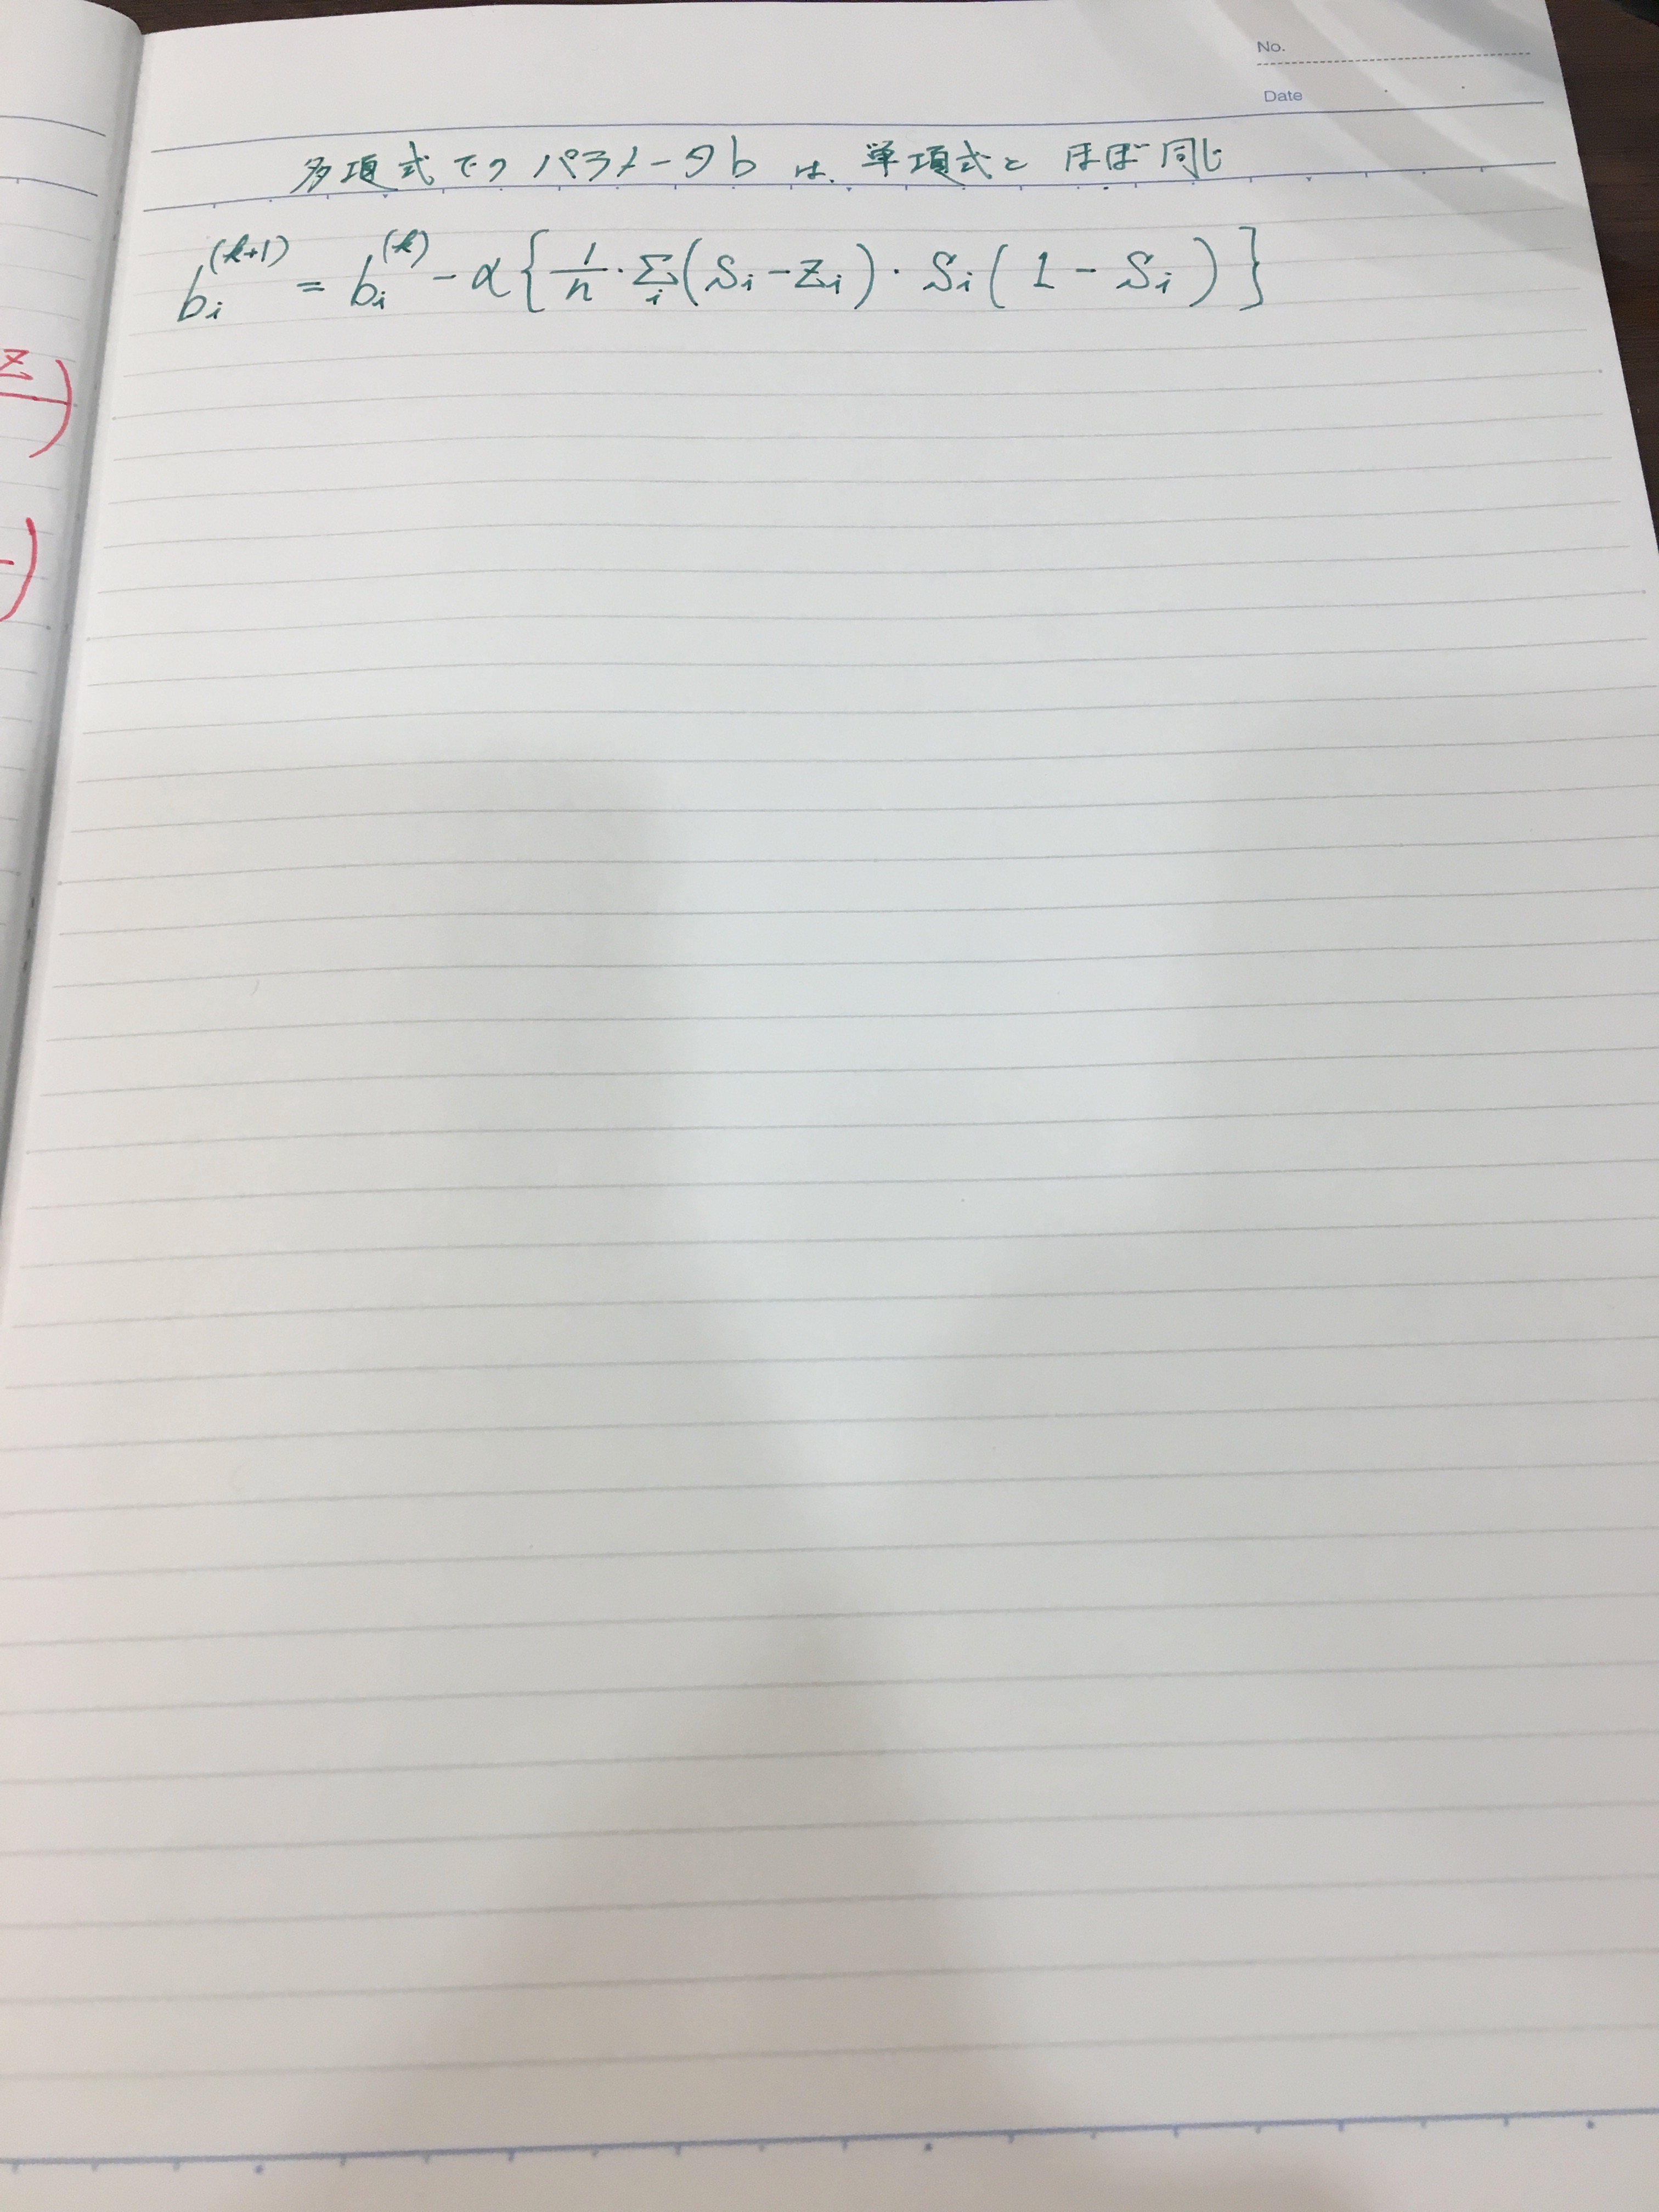 No.
Date
多項式でのパラメータbは、単項式とほぼ同じ
b_i^{(k+1)} = b_i^{(k)} - α{ \frac{1}{n} · Σ_i (S_i - Z_i) · S_i ( 1 - S_i ) }
z
)
-)